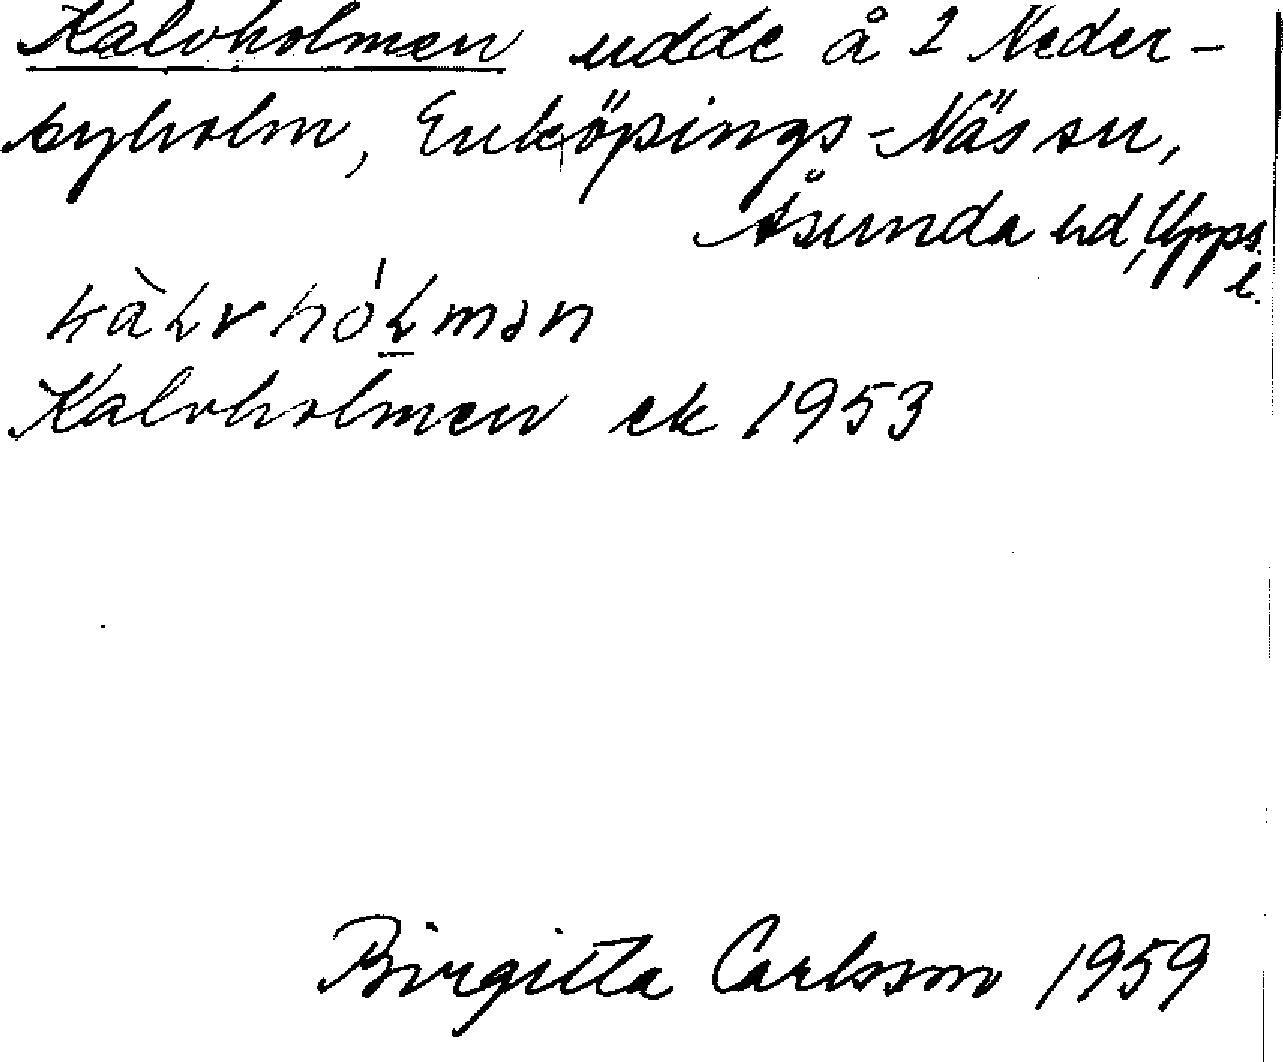 Kalvholmen udde å 1 Neder-
byholm, Enköpings-Näs sn,
Åsunda hd, Upps.
l.
Kalvholmen ek 1953
Birgitta Carlsson 1959